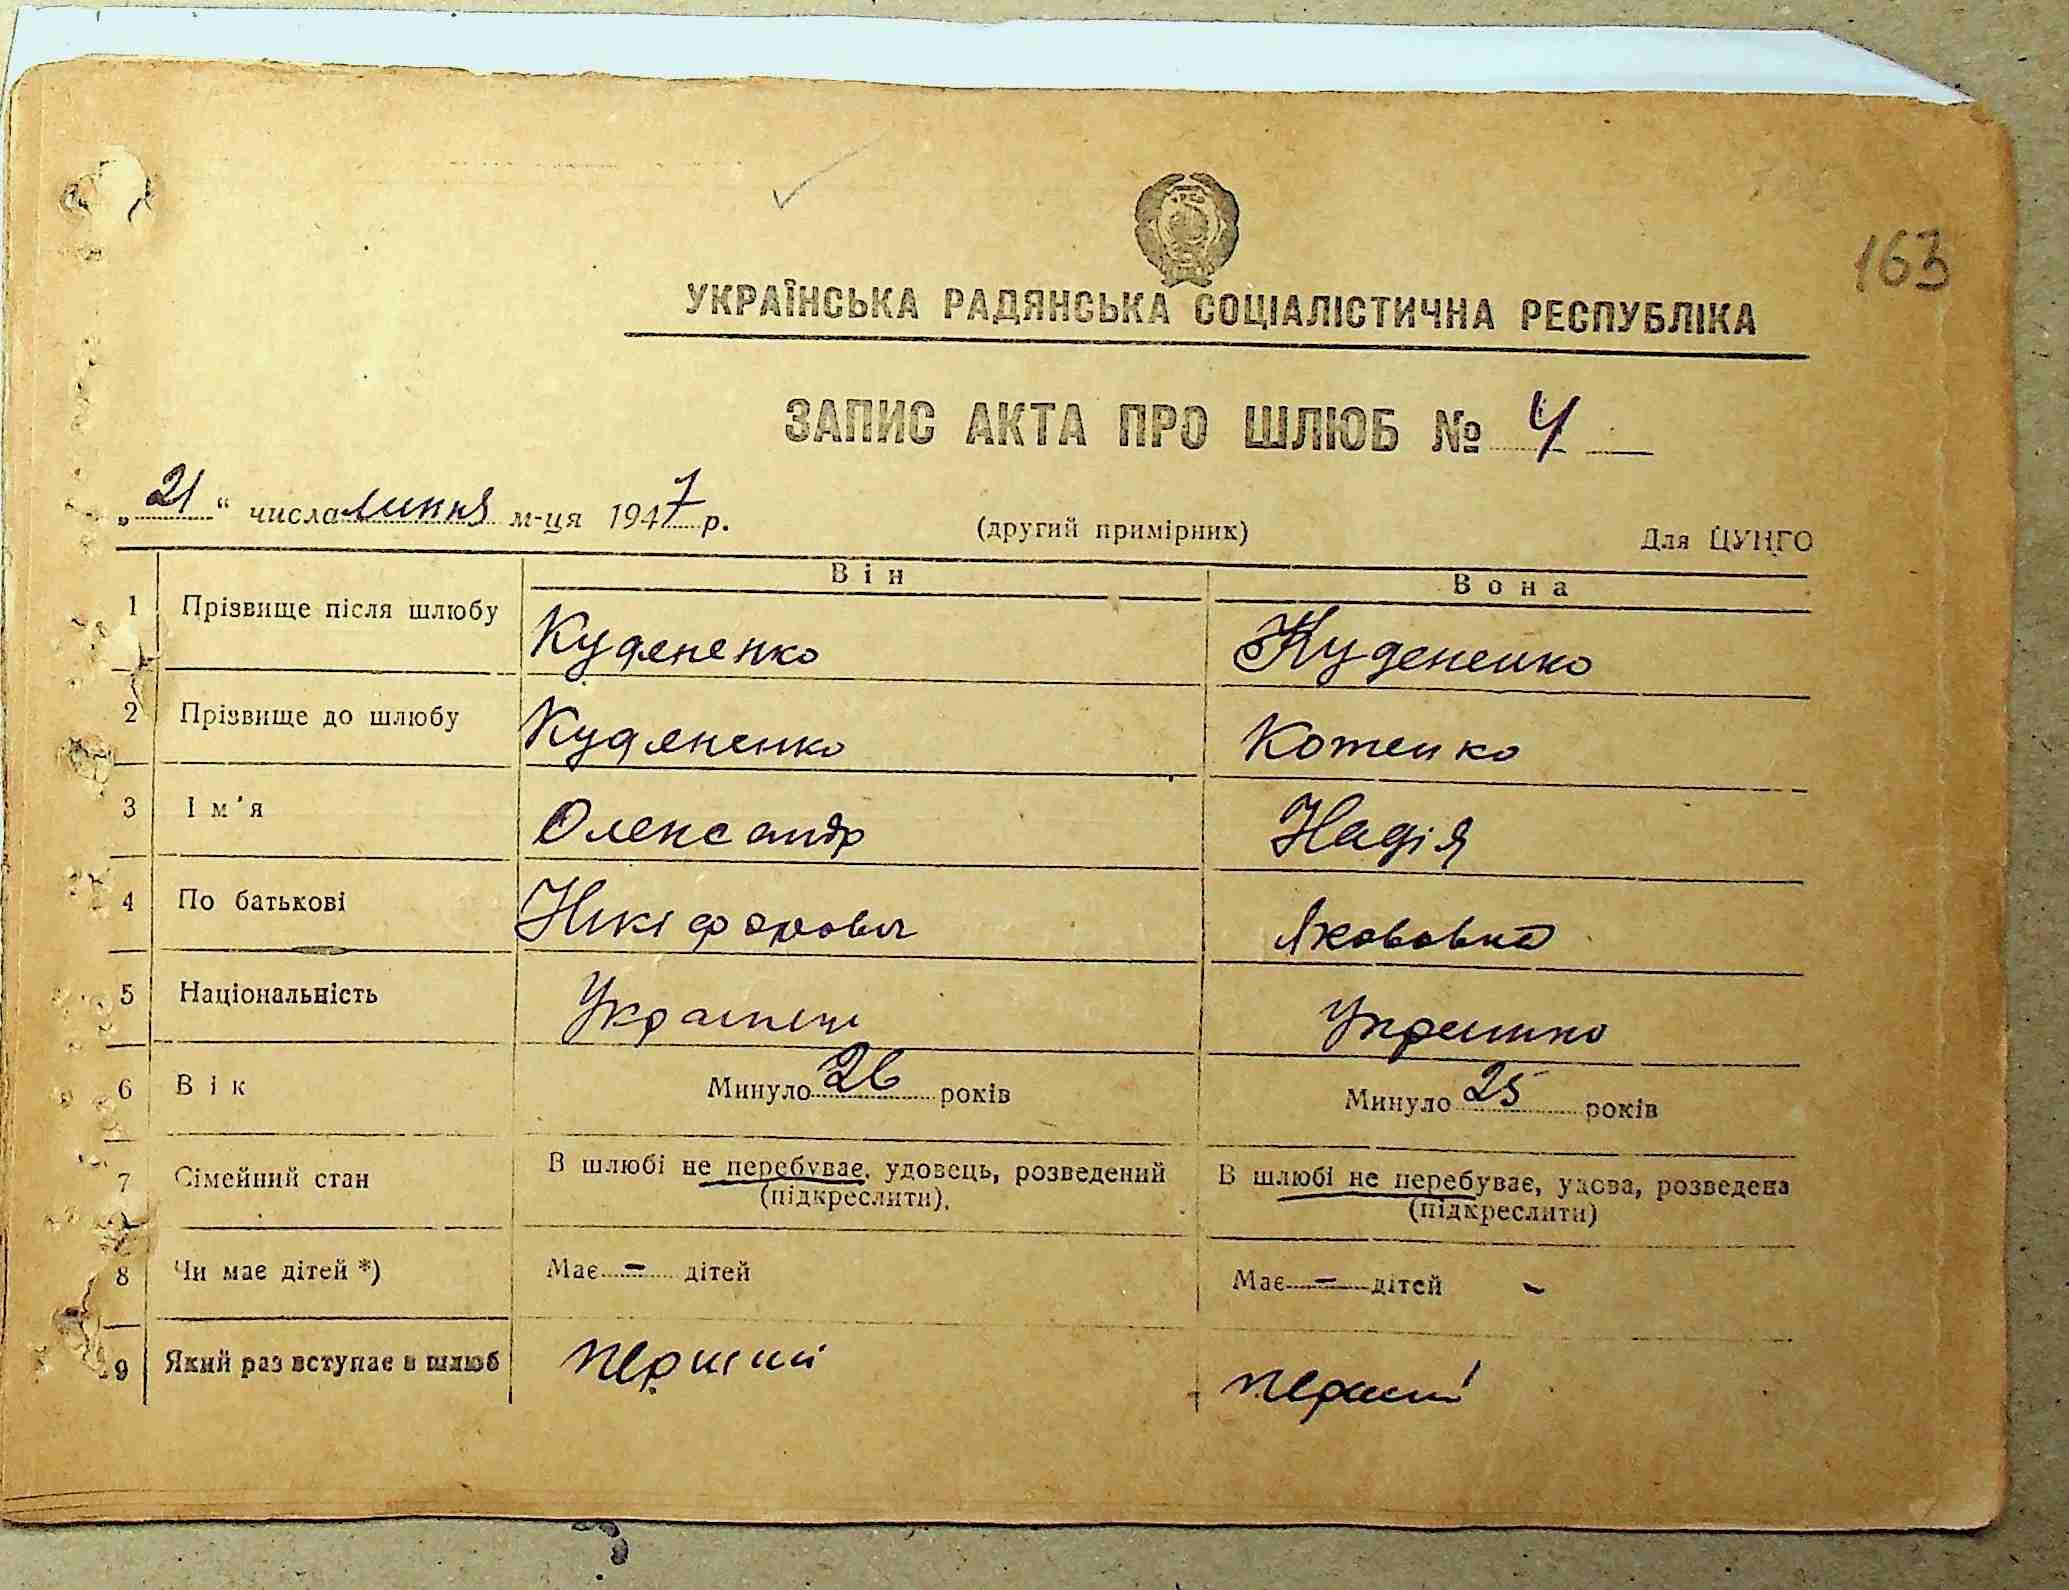 163
УКРАЇНСЬКА РАДЯНСЬКА СОЦІАЛІСТИЧНА РЕСПУБЛІКА
ЗАПИС АКТА ПРО ШЛЮБ № 4
„21“ числа липня м-ця 1947 р. (другий примірник) Для ЦУНГО
Він Вона
1 Прізвище після шлюбу Куделенко Куделенко
2 Прізвище до шлюбу Куделенко Котенко
3 Ім'я Олександр Надія
4 По батькові Нікіфорович Якововна
5 Національність Українець Українка
6 Вік Минуло 26 років Минуло 25 років
7 Сімейний стан В шлюбі не перебуває, удовець, розведений В шлюбі не перебуває, удова, розведена
(підкреслити). (підкреслити)
8 Чи має дітей *) Має – дітей Має – дітей -
9 Який раз вступає в шлюб перший перший